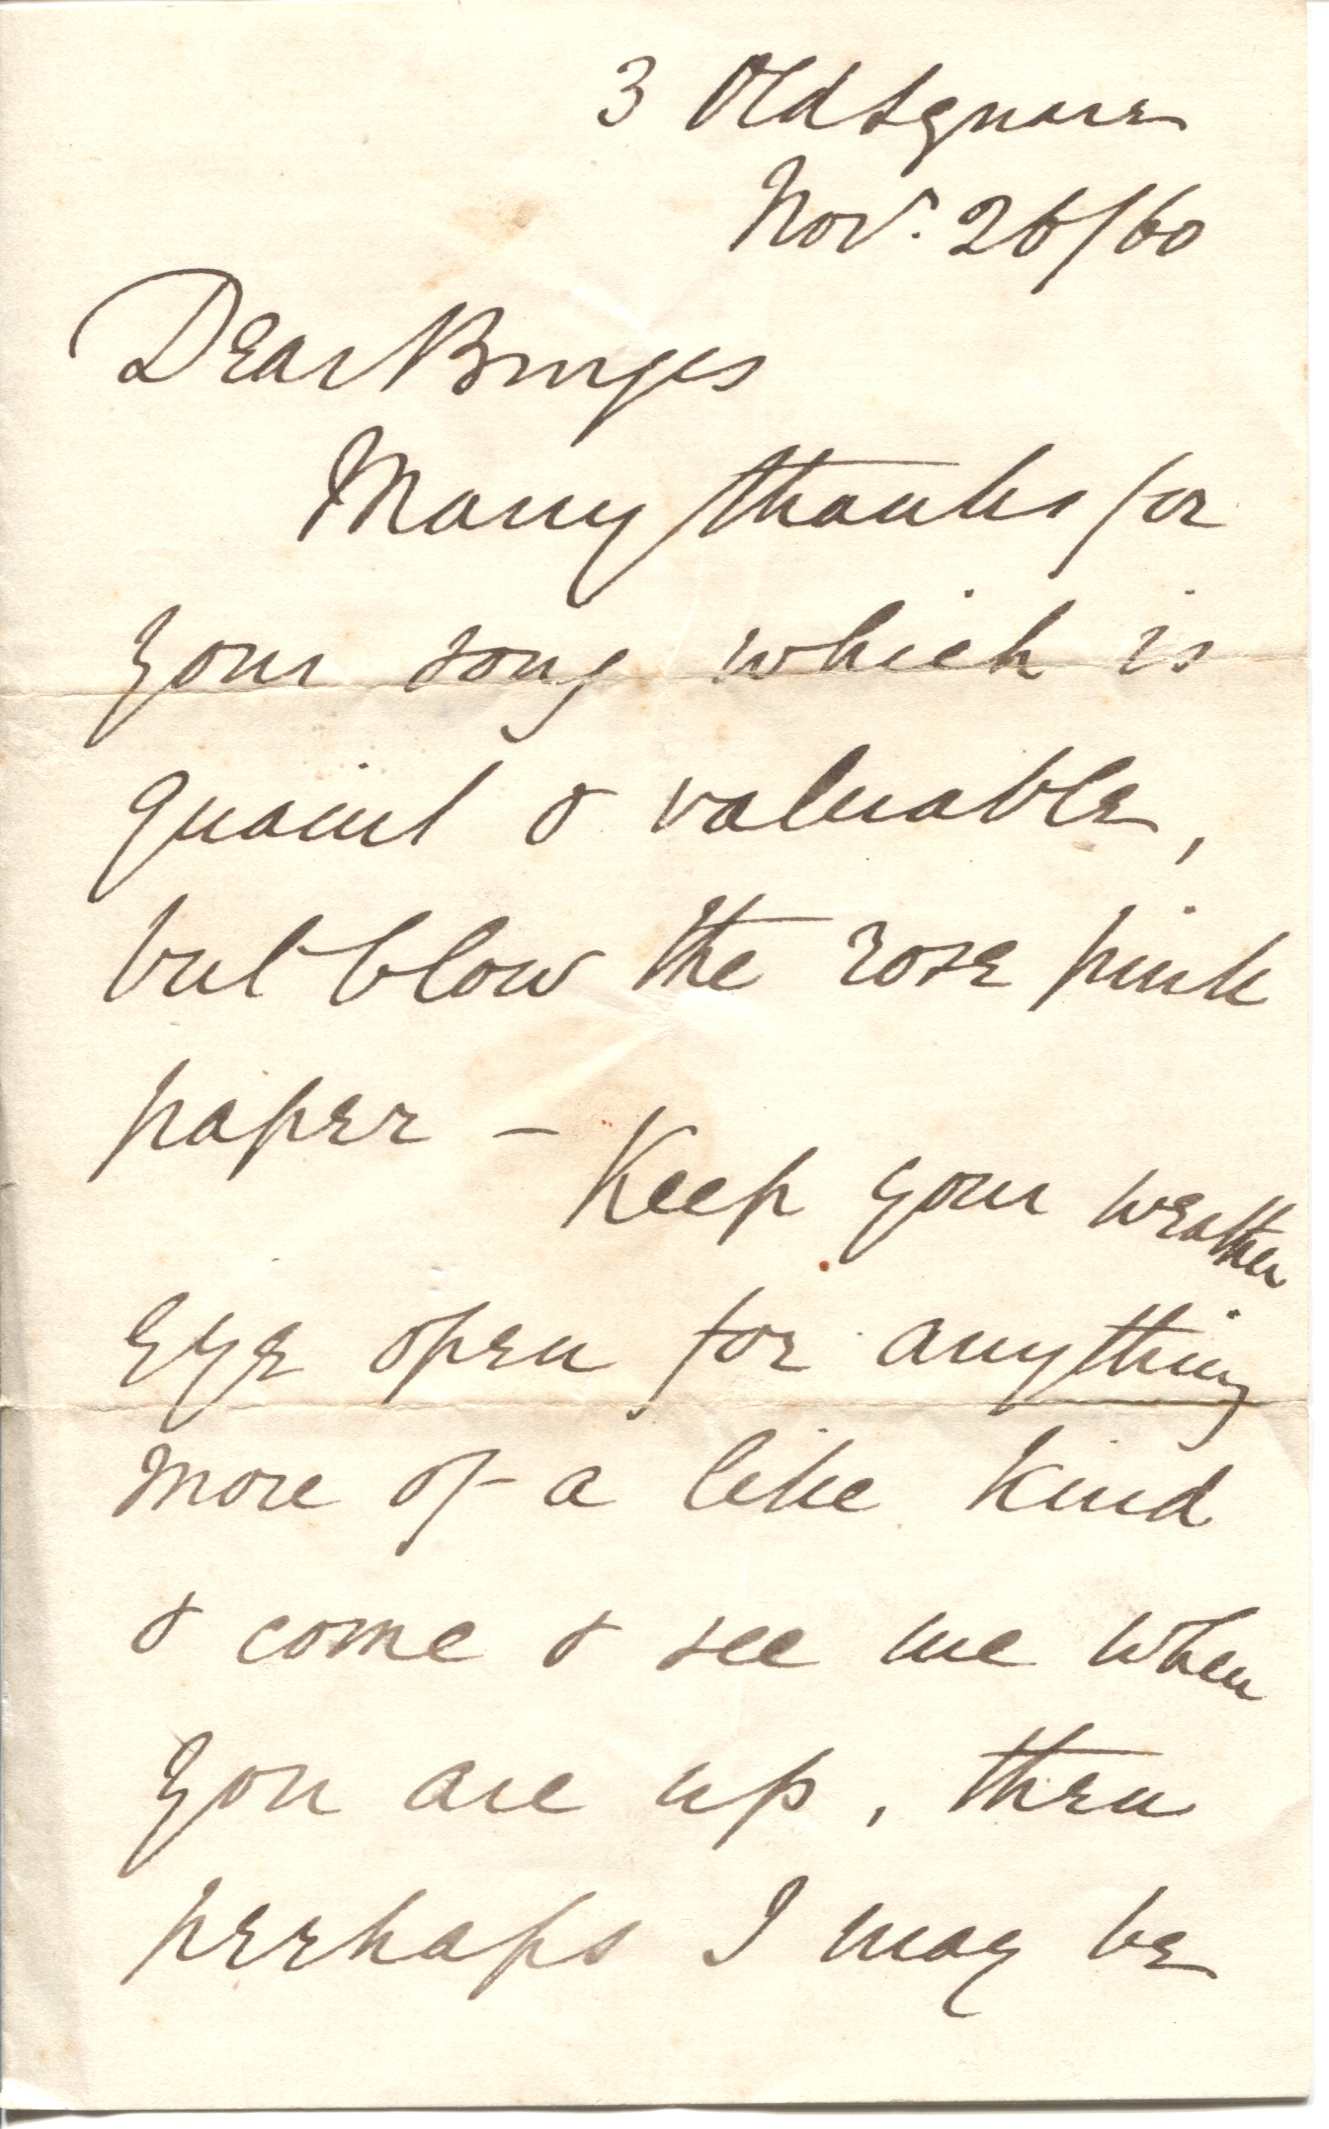 3 Old Square
Nov. 26/60
Dear Burges
Many thanks for
your song which is
quaint & valuable,
but blow the rose pink
paper – Keep your weather
eye open for anything
more of a like kind
& come & see me when
you are up, then
perhaps I may be